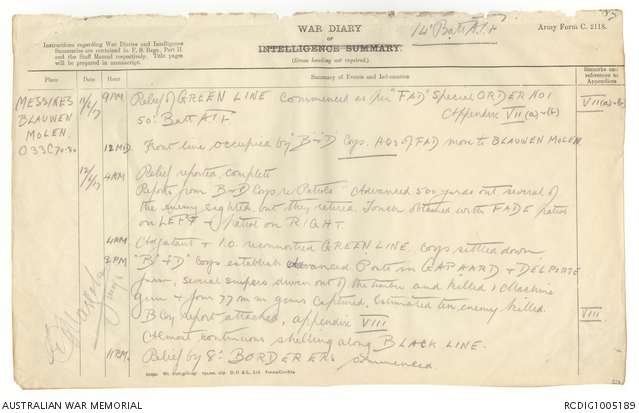 14 Batt A.I.F.
WAR DIARY
or
INTELLIGENCE SUMMARY.
(Erase heading not required.)
Army Form C. 2118.
Instructions regarding War Diaries and Intelligence
Summaries are contained in F. S. Regs., Part II.
and the Staff Manual respectively. Title pages
will be prepared in manuscript.
Place Date Hour Summary of Events and Information Remarks and references to Appendices
MESSINES 11/6/17 9 PM Relief of GREEN LINE commenced as per "FAD" Special ORDER No 1 VII (a)-(b)
BLAUWEN 50. Batt A.I.F. Appendix VII (a)-(b)
MOLEN
O33C70.80 12 MD Front line occupied by "B"+"D" Coys. HQs of FAD move to BLAUWEN MOLEN.
12/6/17 4 AM Relief reported complete
Reports from B+D Coys re Patrols. Advanced 500 yards out several of
the enemy sighted, but they retired. Touch obtained with FADE patrol
on LEFT + patrol on RIGHT.
4 AM Adjutant + I.O. reconnoitred GREEN LINE, Coys settled down
2 PM "B"+"D" Coys establish Advanced Posts in GAPAARD + DELPORTE
farm, several snipers driven out of the latter and killed, Machine
gun + four 77 m.m guns captured. Estimated ten enemy killed.
B Coy report attached, appendix VIII VIII
Almost continuous shelling along BLACK LINE.
11 PM. Relief by 8: BORDERERS commenced
AUSTRALIAN WAR MEMORIAL
RCDIG1005189